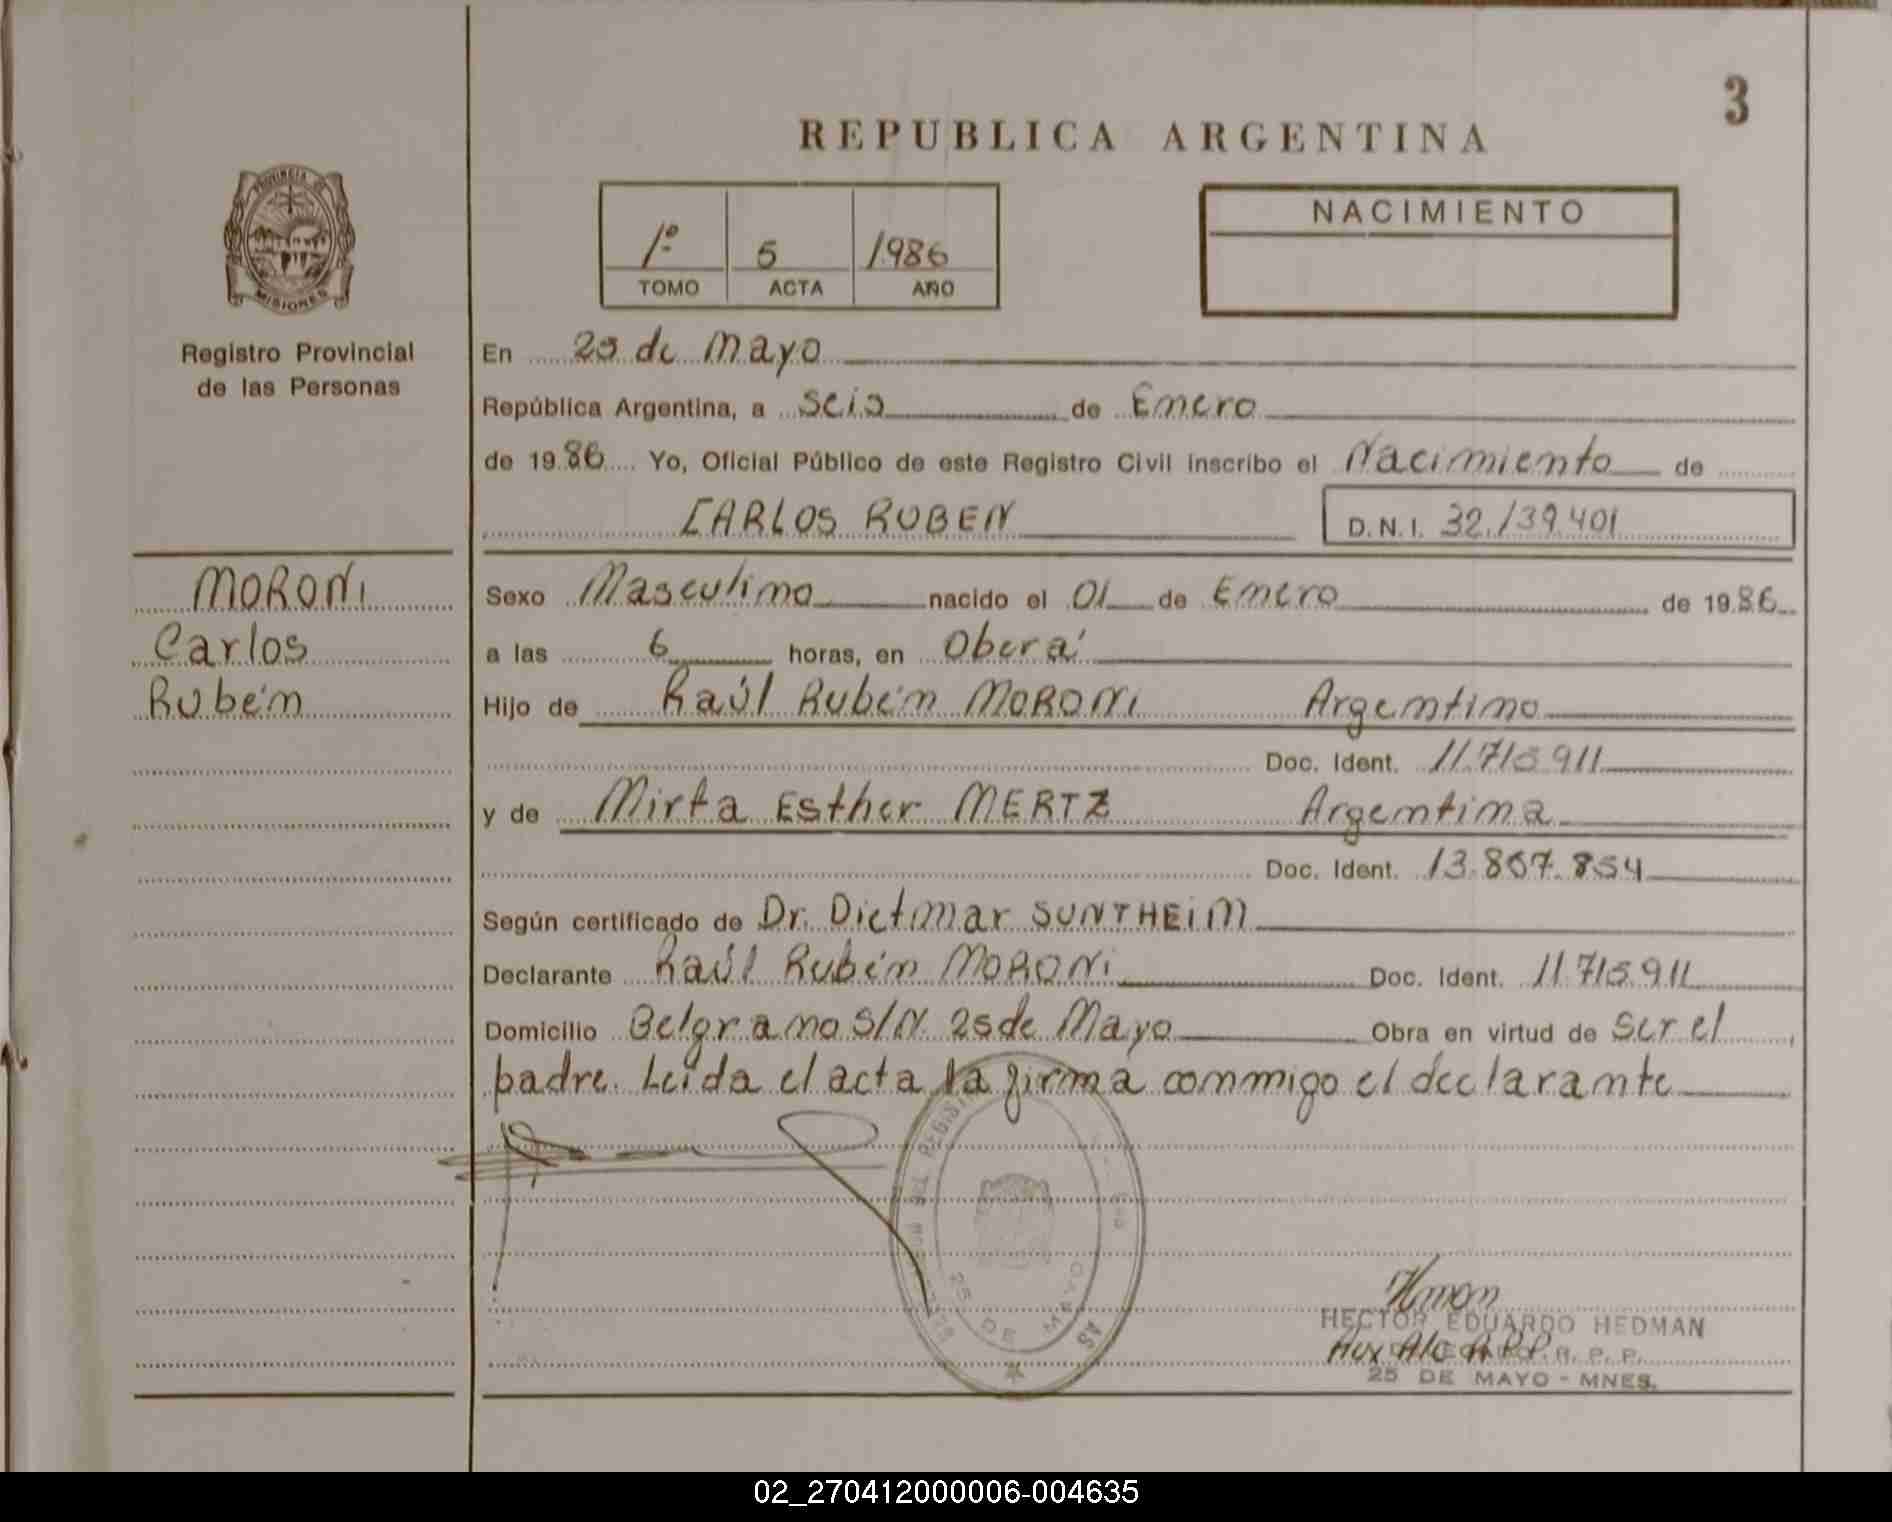 3
REPUBLICA ARGENTINA
PROVINCIA DE
MISIONES
Registro Provincial
de las Personas
1º 5 1986
TOMO ACTA AÑO
NACIMIENTO
En 25 de Mayo
República Argentina, a Seis de Enero
de 1986 Yo, Oficial Público de este Registro Civil inscribo el Nacimiento de
CARLOS RUBEN D.N.I. 32.139.401
MORONI
Carlos
Rubén
Sexo Masculino nacido el 01 de Enero de 1986
a las 6 horas, en Oberá
Hijo de Raúl Rubén MORONI Argentino
Doc. Ident. 11.715.911
y de Mirta Esther MERTZ Argentina
Doc. Ident. 13.867.854
Según certificado de Dr. Dietmar SUNTHEIM
Declarante Raúl Rubén MORONI Doc. Ident. 11.715.911
Domicilio Belgrano S/N. 25 de Mayo Obra en virtud de ser el
padre. Leída el acta la firma conmigo el declarante
25 DE MAYO
HECTOR EDUARDO HEDMAN
R. P. P.
25 DE MAYO - MNES.
02_270412000006-004635